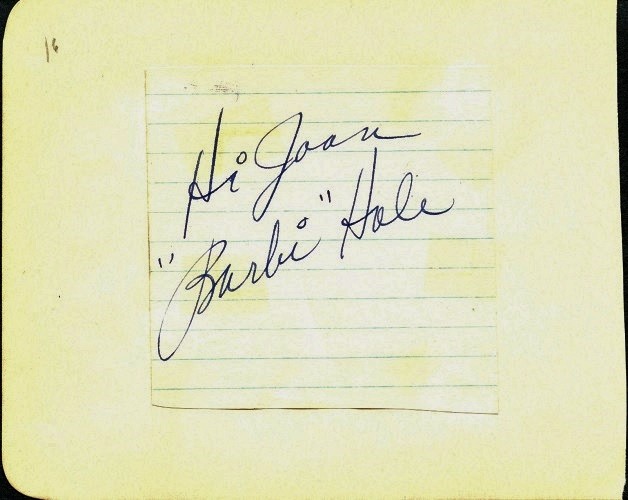 16
Hi Joan
"Barbi" Hale